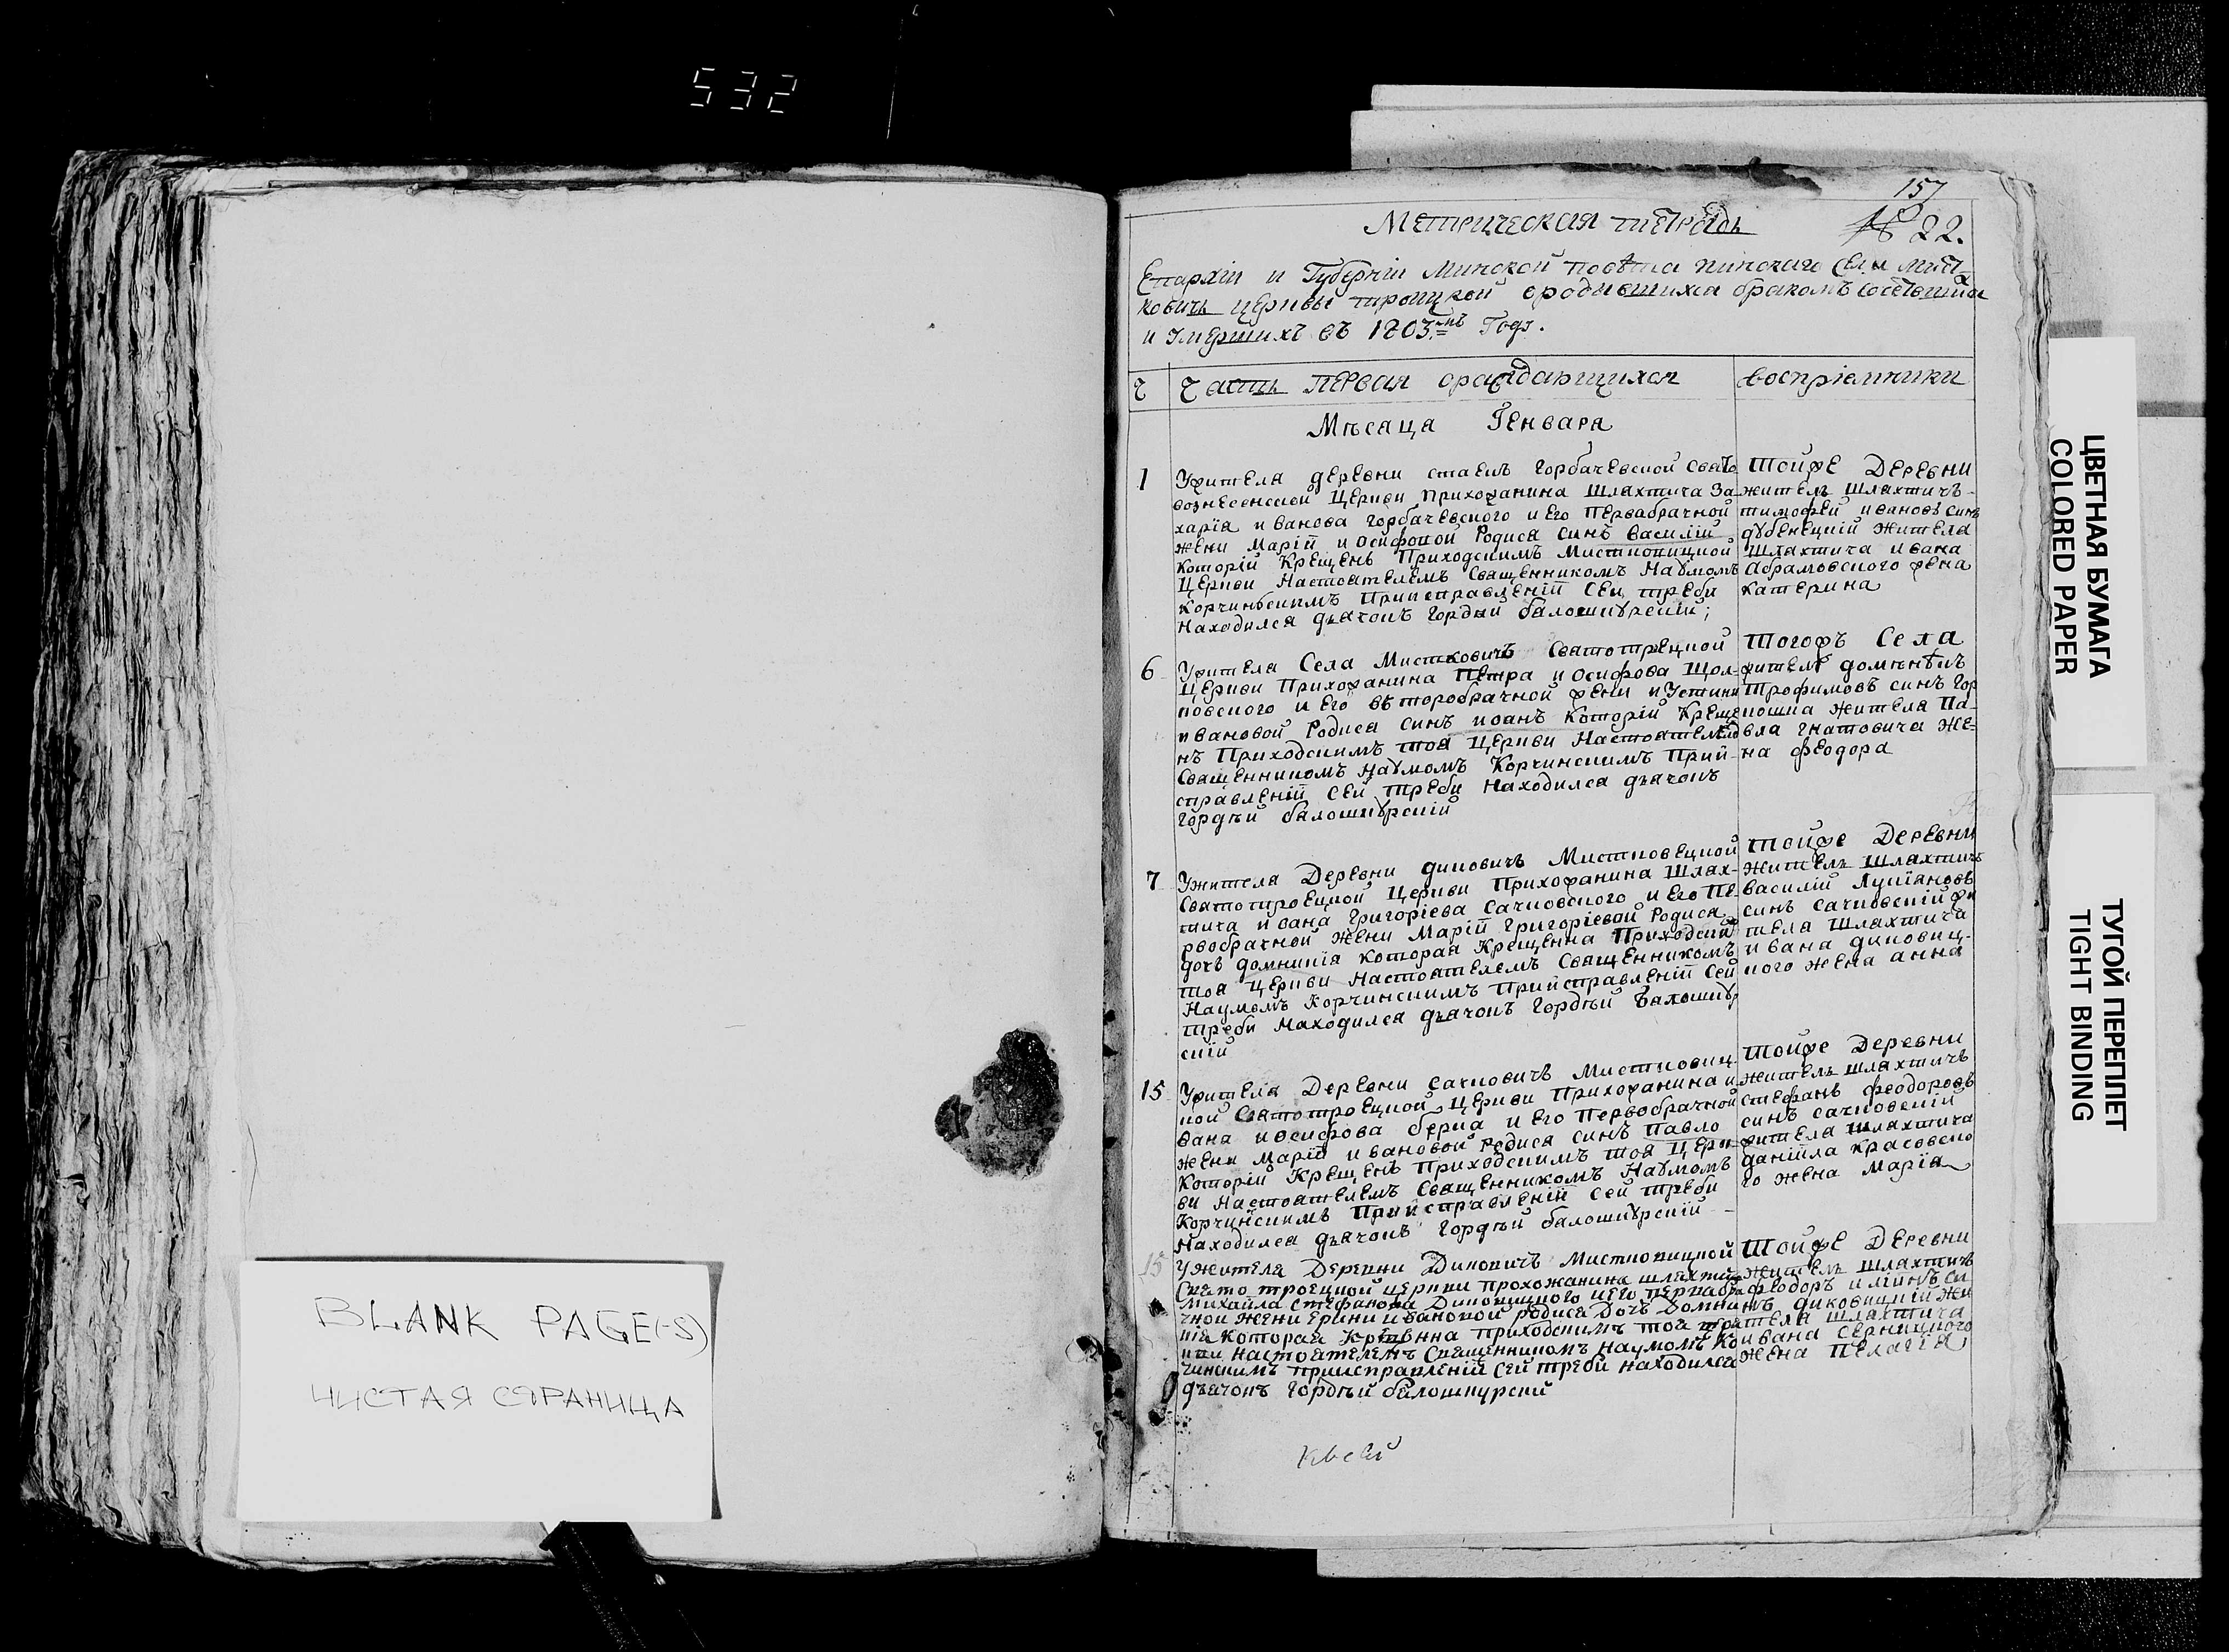 532
BLANK PAGE(-S)
ЧИСТАЯ СТРАНИЦА
157
Метрическая тетрадь
№ 22.
Епархіи и Губерніи Минской повѣта пинскаго Села Мист-
ковичъ церквы троицкой ородившихся бракомъ
и умершихъ въ 1803мъ Годѣ.
Ч
Часть первая ораждающихся
воспріемники
Мѣсаца Генваря
1
Ужителя деревни стаекъ Горбачевской Свято
вознесенской Церкви Прихожанина Шляхтича За-
харія иванова Горбачевского и Его Первабрачной
жени Маріи иосифовой Родися синъ Василій
Которій Крещенъ Приходскимъ Мистковицкой
Церкви Настоятелемъ Священникомъ Наумомъ
Корчинскимъ Приисправленіи Сеи треби
Находился дьячокъ Гордѣй балошкурскій;
Тойже Деревни
житель Шляхтичъ
тимофей ивановъ синъ
дубенецкій Жителя
Шляхтича ивана
Абрамовского жена
Катерина
6
Ужителя Села Мистковичъ Святотрецкой
Церкви Прихожанина Петра иосифова Шол-
ковского и Его второбрачной жени иустини
ивановой Родися синъ иоанъ Которій Креще
нъ Приходскимъ тоя Церкви Настоятелемъ
Священникомъ Наумомъ Корчинскимъ Прий-
справленіи Сей Треби Находился дьячокъ
Гордѣй балошкурскій
Тогожъ Села
житель доминѣкъ
Трофимовъ синъ Гор
пошка Жителя Па-
вла Гнатовича Же-
на Феодора
7
Ужителя Деревни диковичъ Мистковецкой
Святотроецкой Церкви Прихожанина Шлях-
тича ивана Григоріева Сачковского и Его Пе-
рвобрачной Жени Маріи Григоріевой Родися
дочъ домникія Которая Крещенна Приходским
тоя Церкви Настоятелемъ Священникомъ
Наумомъ Корчинскимъ Прийсправленіи Сей
Треби Находился дьячокъ Гордѣй Балошкур
скій
Тойже Деревни
Житель Шляхтичъ
Василій Лукіановъ
синъ сачковскій жи
теля Шляхтича
ивана диковиц-
кого жена анна
15
Ужителя Деревни сачковичъ Мистковиц-
кой Святотроецкой Церкви Прихожанина и
вана иосифова берца и Его Первобрачной
жени Маріи ивановой Родися синъ Павло
Которій Крещенъ Приходскимъ тоя Церк
ви Настоятелемъ Священникомъ Наумомъ
Корчинскимъ Прийсправленіи сей треби
Находился дьячокъ Гордѣй балошкурскій
Тойже Деревни
Житель шляхтичъ
стефанъ феодоровъ
синъ сачковскій
жителя шляхтича
даниила красовско
го жена Марія
15
Ужителя Деревни Диковичъ Мистковицкой
Свято троецкой церкви прохожанина шляхтича
михайла стефанова Диковицкого иЕго первабра
чной жени Ерини ивановой родися Дочъ Домни
кія Которая Крещенна приходскимъ тоя
кви настоятелемъ Священникомъ Наумомъ Ко
чинскимъ приисправленіи сей треби находился
дьячокъ Гордѣй балошкурскій
Тойже Деревни
Житель шляхтичъ
феодоръ илійнъ си
нъ диковицкій жи
теля шляхтича
ивана Серницкого
жена Пелагія
Квсей
ЦВЕТНАЯ БУМАГА
COLORED PAPER
ТУГОЙ ПЕРЕПЛЕТ
TIGHT BINDING